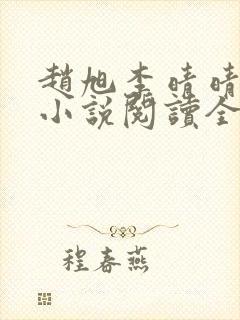 趙旭李晴晴
小說閱讀全
程春燕